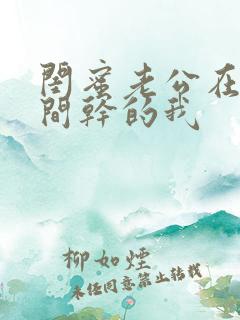 閨蜜老公在
間幹的我
柳如煙
未经同意禁止转载